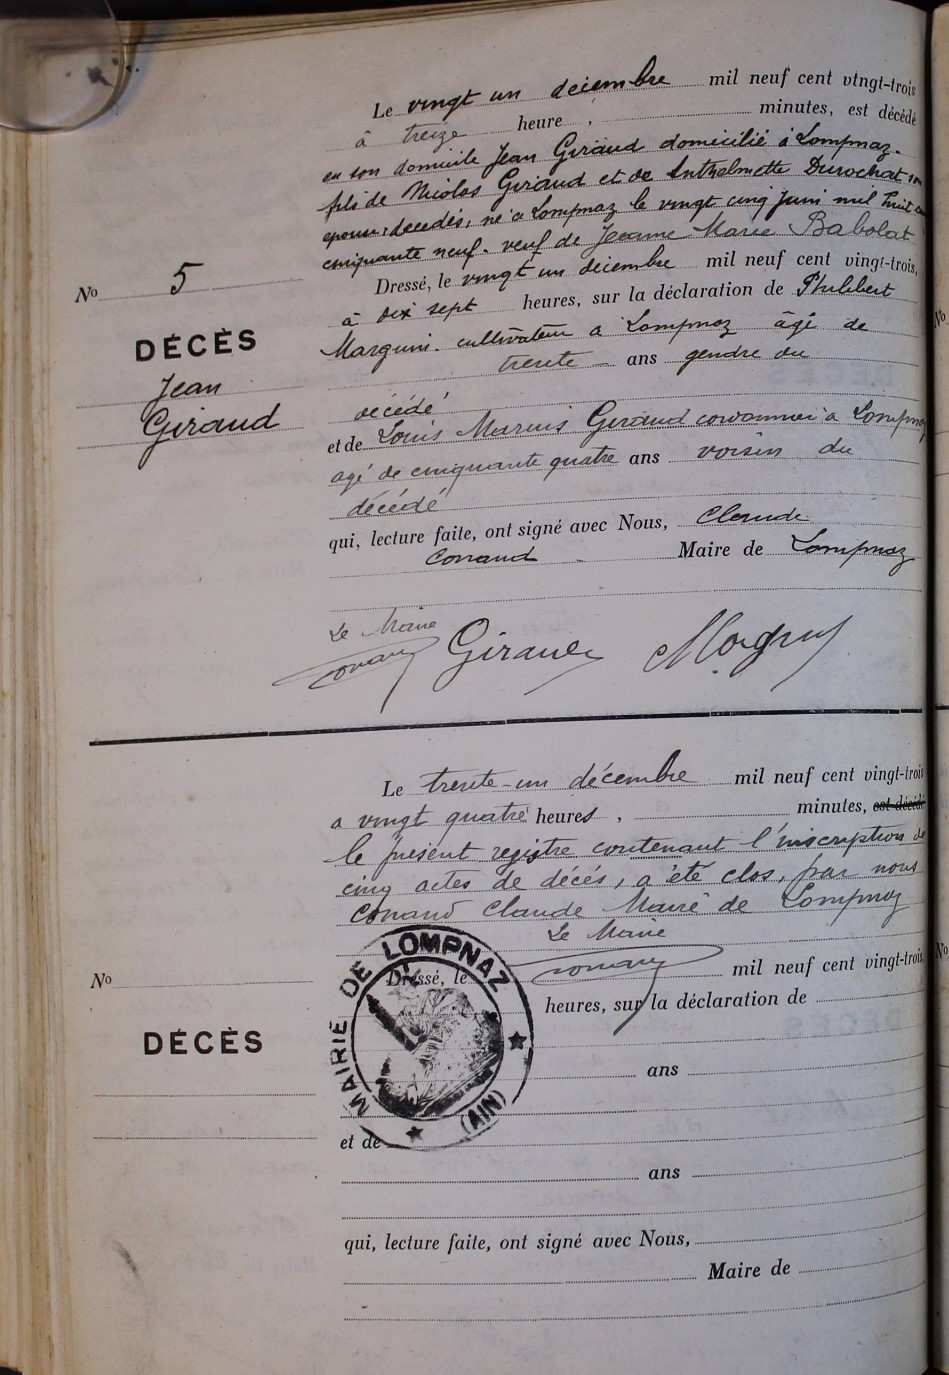 Le vingt un décembre mil neuf cent vingt-trois
à treize heure, minutes, est décédé
en son domicile Jean Giraud domicilié à Lompnaz.
fils de Nicolas Giraud et de Anthelmette Durochat
epoux, décédés, né à Lompnaz le vingt cinq juin mil huit
cinquante neuf. veuf de Jeanne Marie Babolat
Dressé, le vingt un décembre mil neuf cent vingt-trois,
à dix sept heures, sur la déclaration de Philibert
cultivateur a Lompnaz âgé de
trente ans gendre du
décédé
et de Louis Marius Giraud cordonnier à Lompnaz
agé de cinquante quatre ans voisin du
décédé
qui, lecture faite, ont signé avec Nous, Claude
Conand Maire de Lompnaz
No 5
DÉCÈS
Jean
Giraud
Le Maire
Conand Giraud
Le trente-un décembre mil neuf cent vingt-trois
a vingt quatre heures, minutes, est décédé
le présent registre contenant l'inscription de
cinq actes de décés, a été clos, par nous
Conand Claude Maire de Lompnaz
Le Maire
Conand
Dressé, le mil neuf cent vingt-trois,
heures, sur la déclaration de
ans
et de
ans
qui, lecture faite, ont signé avec Nous,
Maire de
No
DÉCÈS
MAIRIE DE LOMPNAZ
(AIN)
No
No